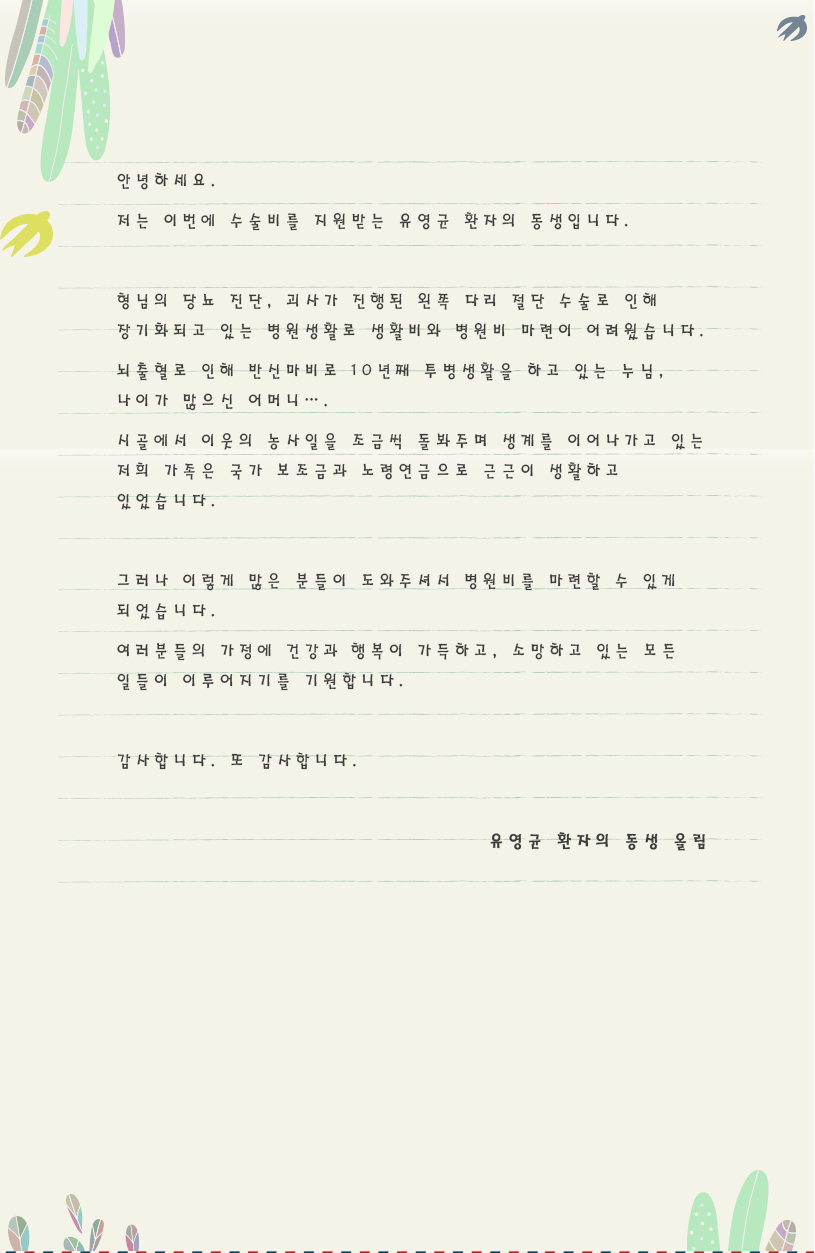 안녕하세요.
저는 이번에 수술비를 지원받는 유영균 환자의 동생입니다.
형님의 당뇨 진단, 괴사가 진행된 왼쪽 다리 절단 수술로 인해
장기화되고 있는 병원생활로 생활비와 병원비 마련이 어려웠습니다.
뇌출혈로 인해 반신마비로 10년째 투병생활을 하고 있는 누님,
나이가 많으신 어머니….
시골에서 이웃의 농사일을 조금씩 돌봐주며 생계를 이어나가고 있는
저희 가족은 국가 보조금과 노령연금으로 근근이 생활하고
있었습니다.
그러나 이렇게 많은 분들이 도와주셔서 병원비를 마련할 수 있게
되었습니다.
여러분들의 가정에 건강과 행복이 가득하고, 소망하고 있는 모든
일들이 이루어지기를 기원합니다.
감사합니다. 또 감사합니다.
유영균 환자의 동생 올림